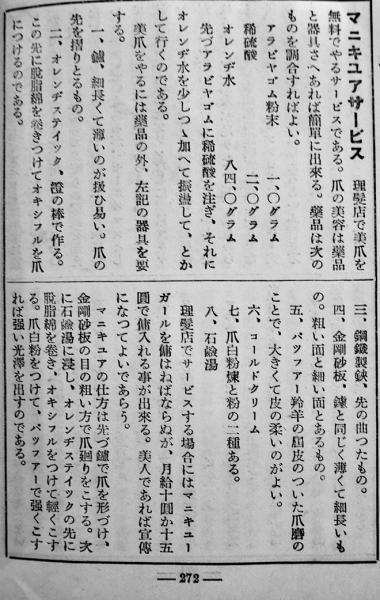 マニキユアサービス　理髮店で美爪を
無料でやるサービスである。爪の美容は藥品
と器具さへあれば簡單に出來る。藥品は次の
ものを調合すればよい。
アラビヤゴム粉末　一、〇グラム
稀硫酸　二、〇グラム
オレンヂ水　八四、〇グラム
先づアラビヤゴムに稀硫酸を注ぎ、それに
オレンヂ水を少しつゝ加へて振盪して、とか
して行くのである。
美爪をやるには藥品の外、左記の器具を要
する。
一、鑢、細長くて薄いのが扱ひ易い。爪の
先を摺りとるもの。
二、オレンヂステイツク、橙の棒で作る。
この先に脱脂綿を卷きつけてオキシフルを爪
につけるのである。
三、鋼鐵製鋏、先の曲つたもの。
四、金剛砂板、鑢と同じく薄くて細長いも
の。粗い面と細い面とあるもの。
五、バツフアー羚羊の屆皮のついた爪磨の
ことで、大きくて皮の柔いのがよい。
六、コールドクリーム
七、爪白粉煉と粉の二種ある。
八、石鹼湯
理髮店でサービスする場合にはマニキユー
ガールを傭はねばならぬが、月給十圓か十五
圓で傭入れる事が出來る。美人であれば宣傳
になつてよいであらう。
マニキユアの仕方は先づ鑢で爪を形づけ、
金剛砂板の目の粗い方で爪廻りをこする。次
に石鹼湯に浸し、オレンヂステイツクの先に
脱脂綿を卷き、オキシフルをつけて輕くこす
る。爪白粉をつけて、バツフアーで強くこす
れば强い光澤を出すのである。
— 272 —